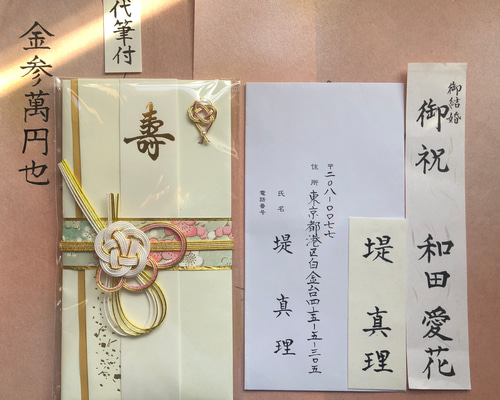 御結婚
御祝 和田愛花
堤真理
〒二〇八-〇〇七七
住所 東京都港区白金台四-五-五-三〇五
氏名 堤真理
電話番号
壽
代筆付
金参萬円也